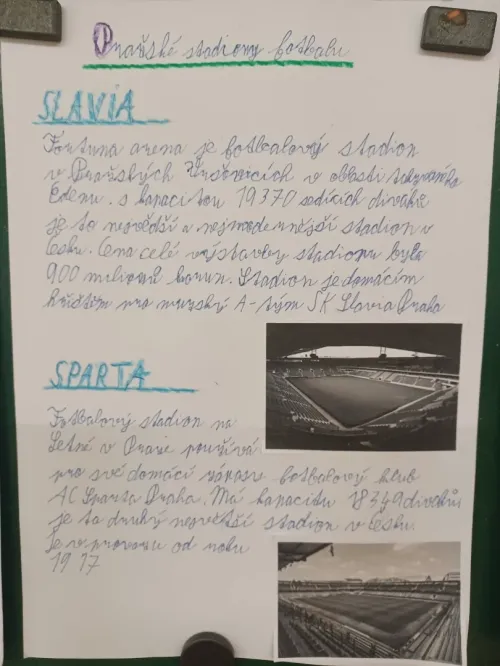 Pražské stadiony fotbalu
SLAVIA
Fortuna arena je fotbalový stadion
v Pražských Vršovicích v oblasti takzvaného
Edenu. s kapacitou 19370 sedících diváků
je to největší a nejmodernější stadion v
Česku. Cena celé výstavby stadionu byla
900 milionů korun. Stadion je domácím
hřištěm pro mužský A-tým SK Slavia Praha
SPARTA
Fotbalový stadion na
Letné v Praze používá
pro své domácí zápasy fotbalový klub
AC Sparta Praha. Má kapacitu 18349 diváků
je to druhý největší stadion v česku.
Je v provozu od roku
1917